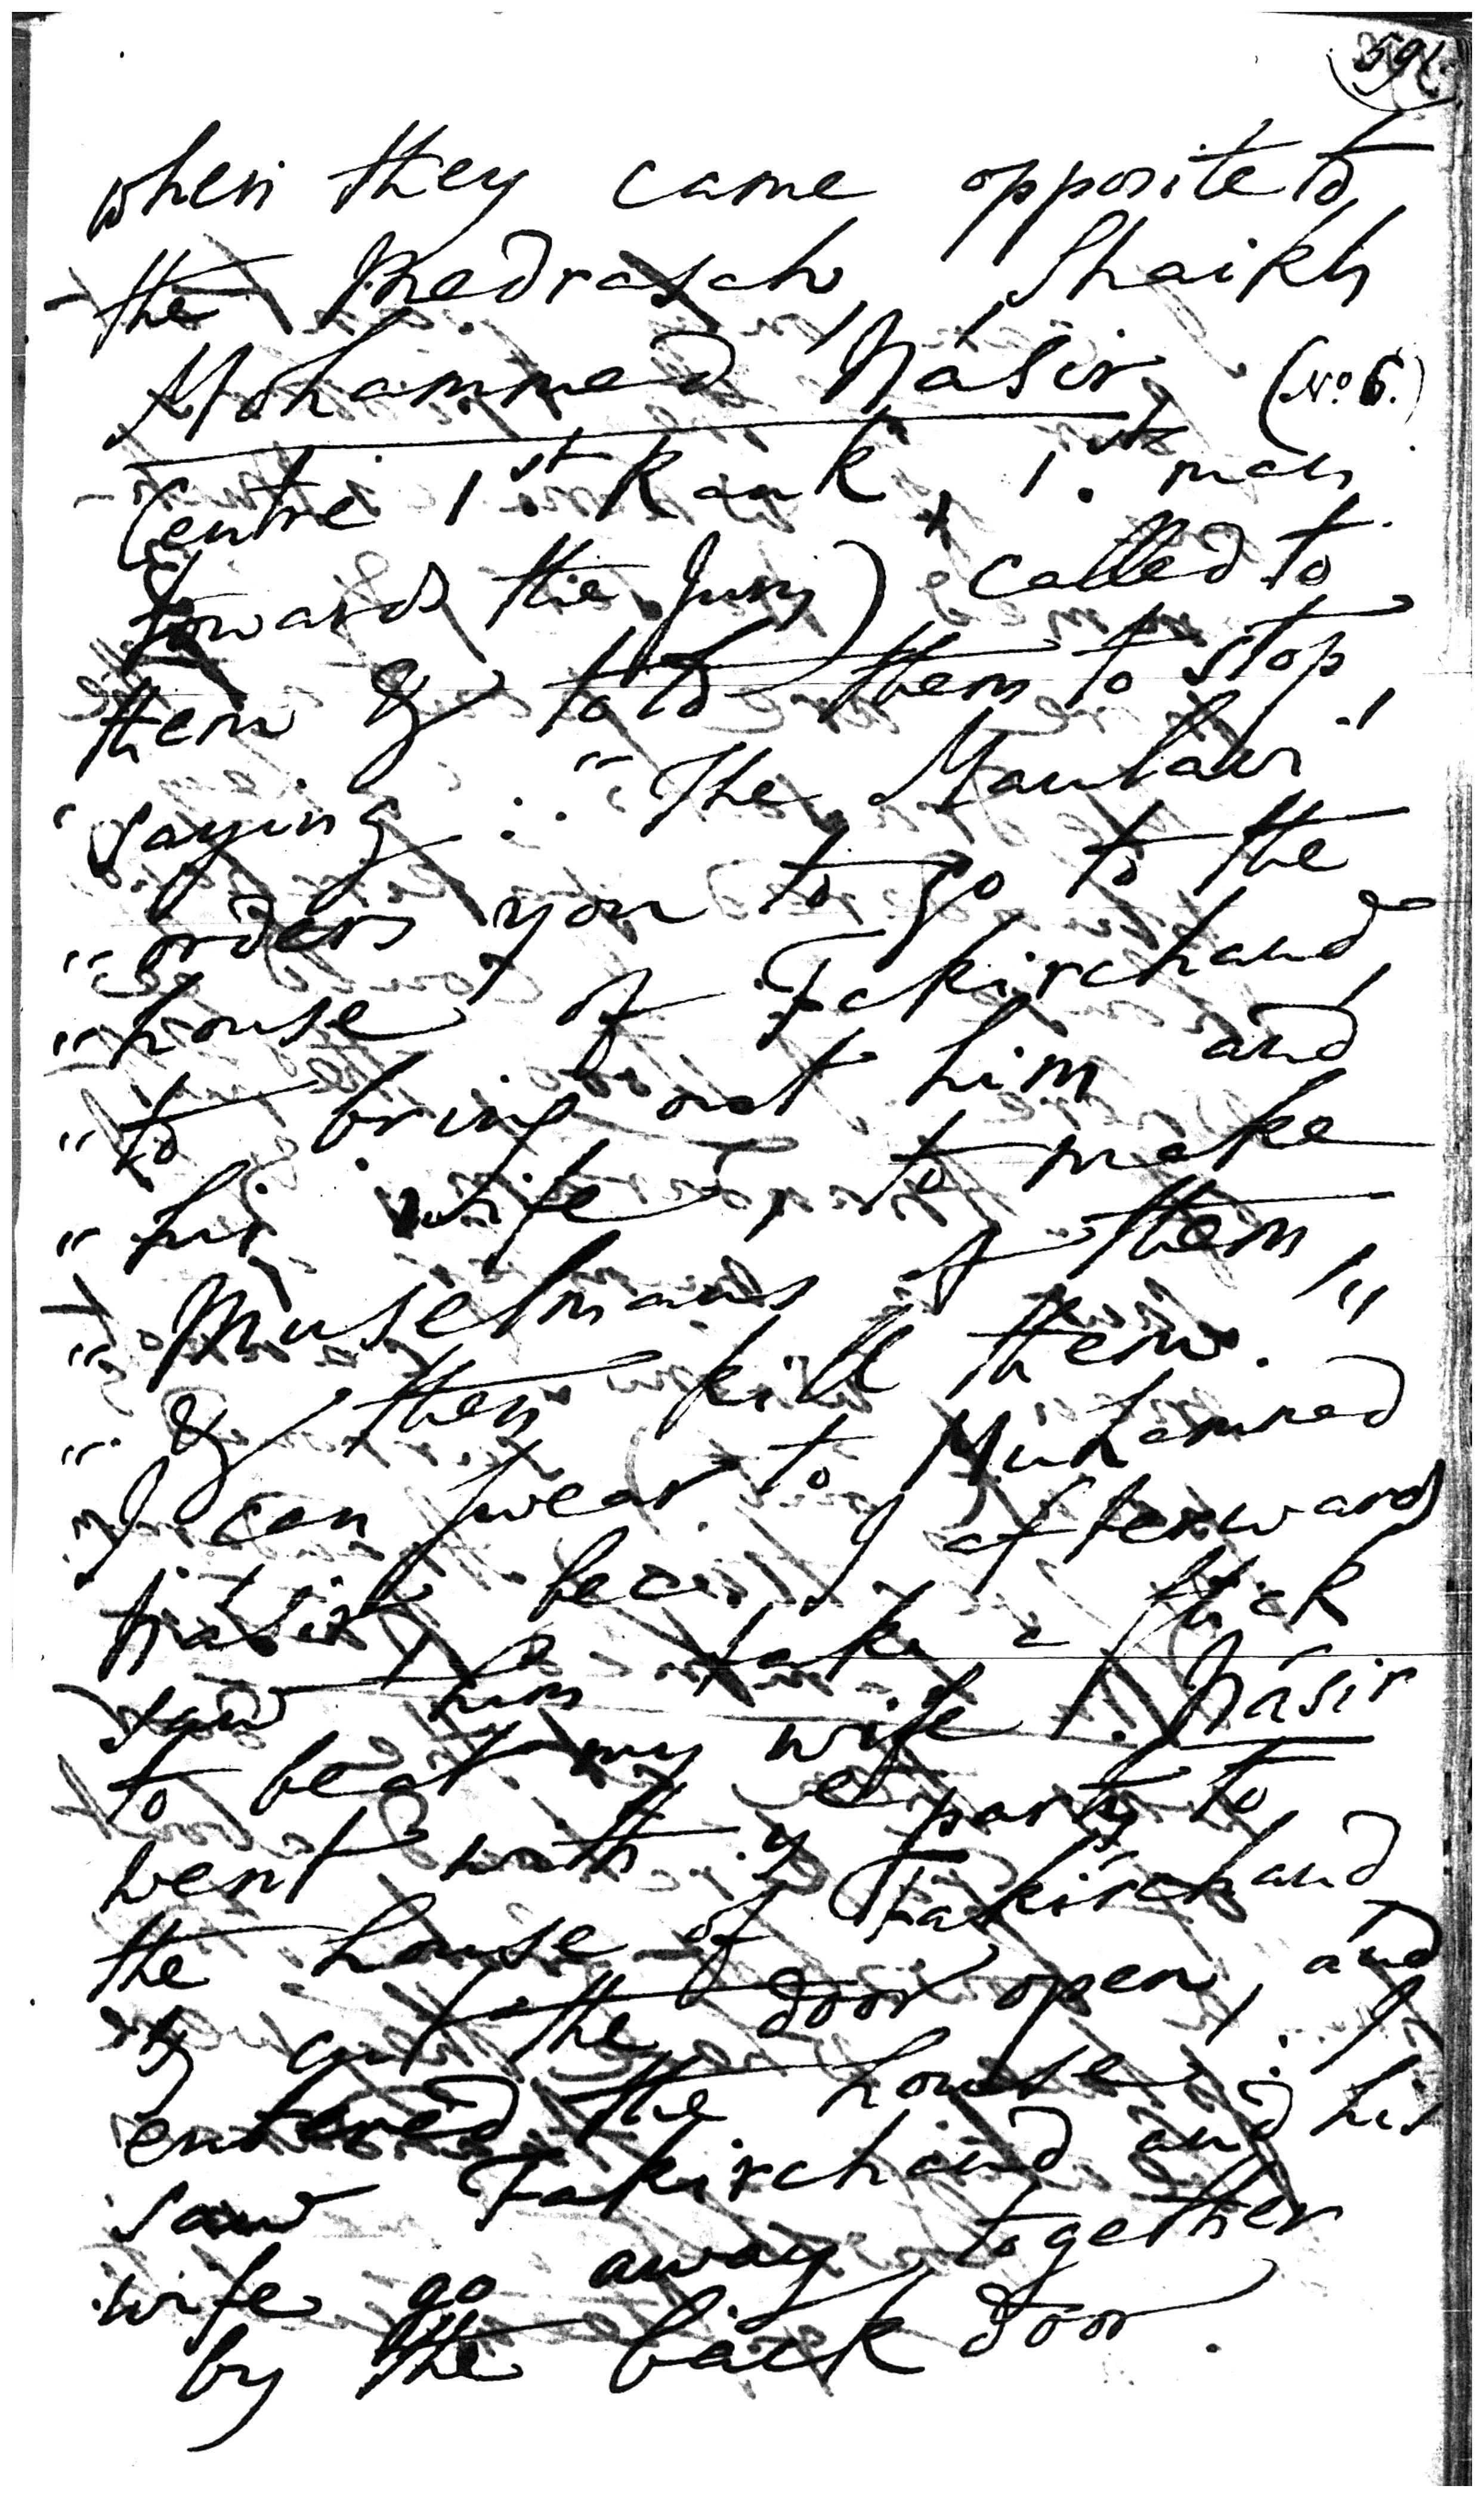 591.
when they came opposite to
the Medrasah, Shaikh
Mohammed Násir, (No. 6.)
(Centre 1st Rank, 1st man
towards the Jury) called to
them & told them to stop,
"saying : "The Maulavi
"orders you to go to the
"house of Fakirchand, &
"to bring out him and
"his wife, to make
"Muselmans of them,
"& then kill them."
I can swear to Muhammed
Násir, bec. I afterwards
saw him take a stick
to beat my wife. Násir
went with ye party to
the house of Fakirchand
& got the door open, and
entered the house : I
saw Fakirchand and his
wife go away together
by the back door.